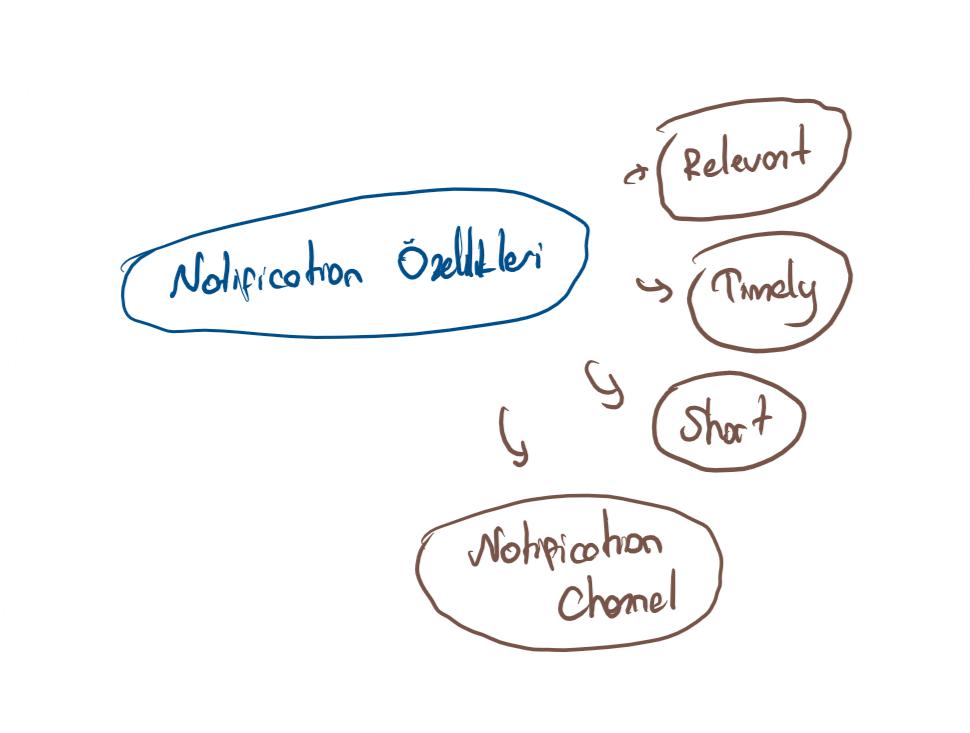 Notification Özellikleri
Relevant
Timely
Short
Notification
Channel